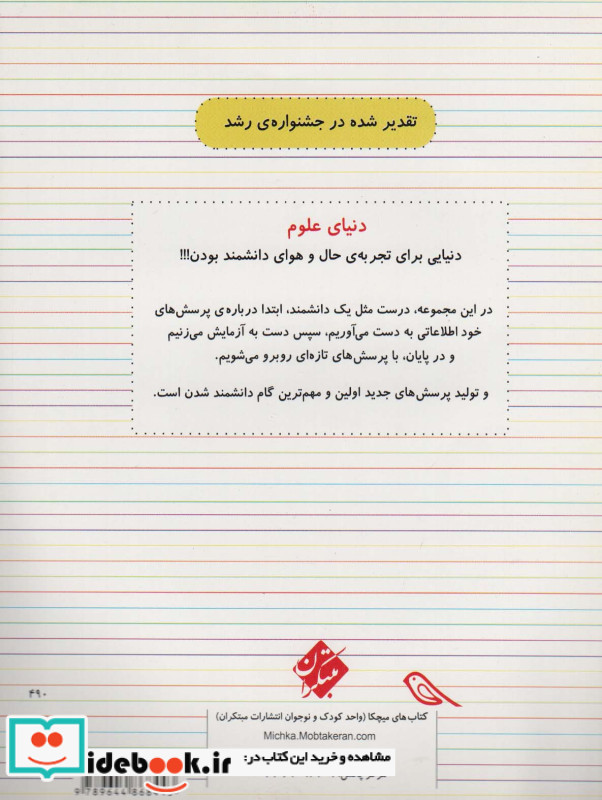 تقدیر شده در جشنواره‌ی رشد
دنیای علوم
دنیایی برای تجربه‌ی حال و هوای دانشمند بودن!!!
در این مجموعه، درست مثل یک دانشمند، ابتدا درباره‌ی پرسش‌های
خود اطلاعاتی به دست می‌آوریم، سپس دست به آزمایش می‌زنیم
و در پایان، با پرسش‌های تازه‌ای روبرو می‌شویم.
و تولید پرسش‌های جدید اولین و مهم‌ترین گام دانشمند شدن است.
مبتکران
۴۹۰
کتاب‌های میچکا (واحد کودک و نوجوان انتشارات مبتکران)
Michka.Mobtakeran.com
مشاهده و خرید این کتاب در:
idebook.ir